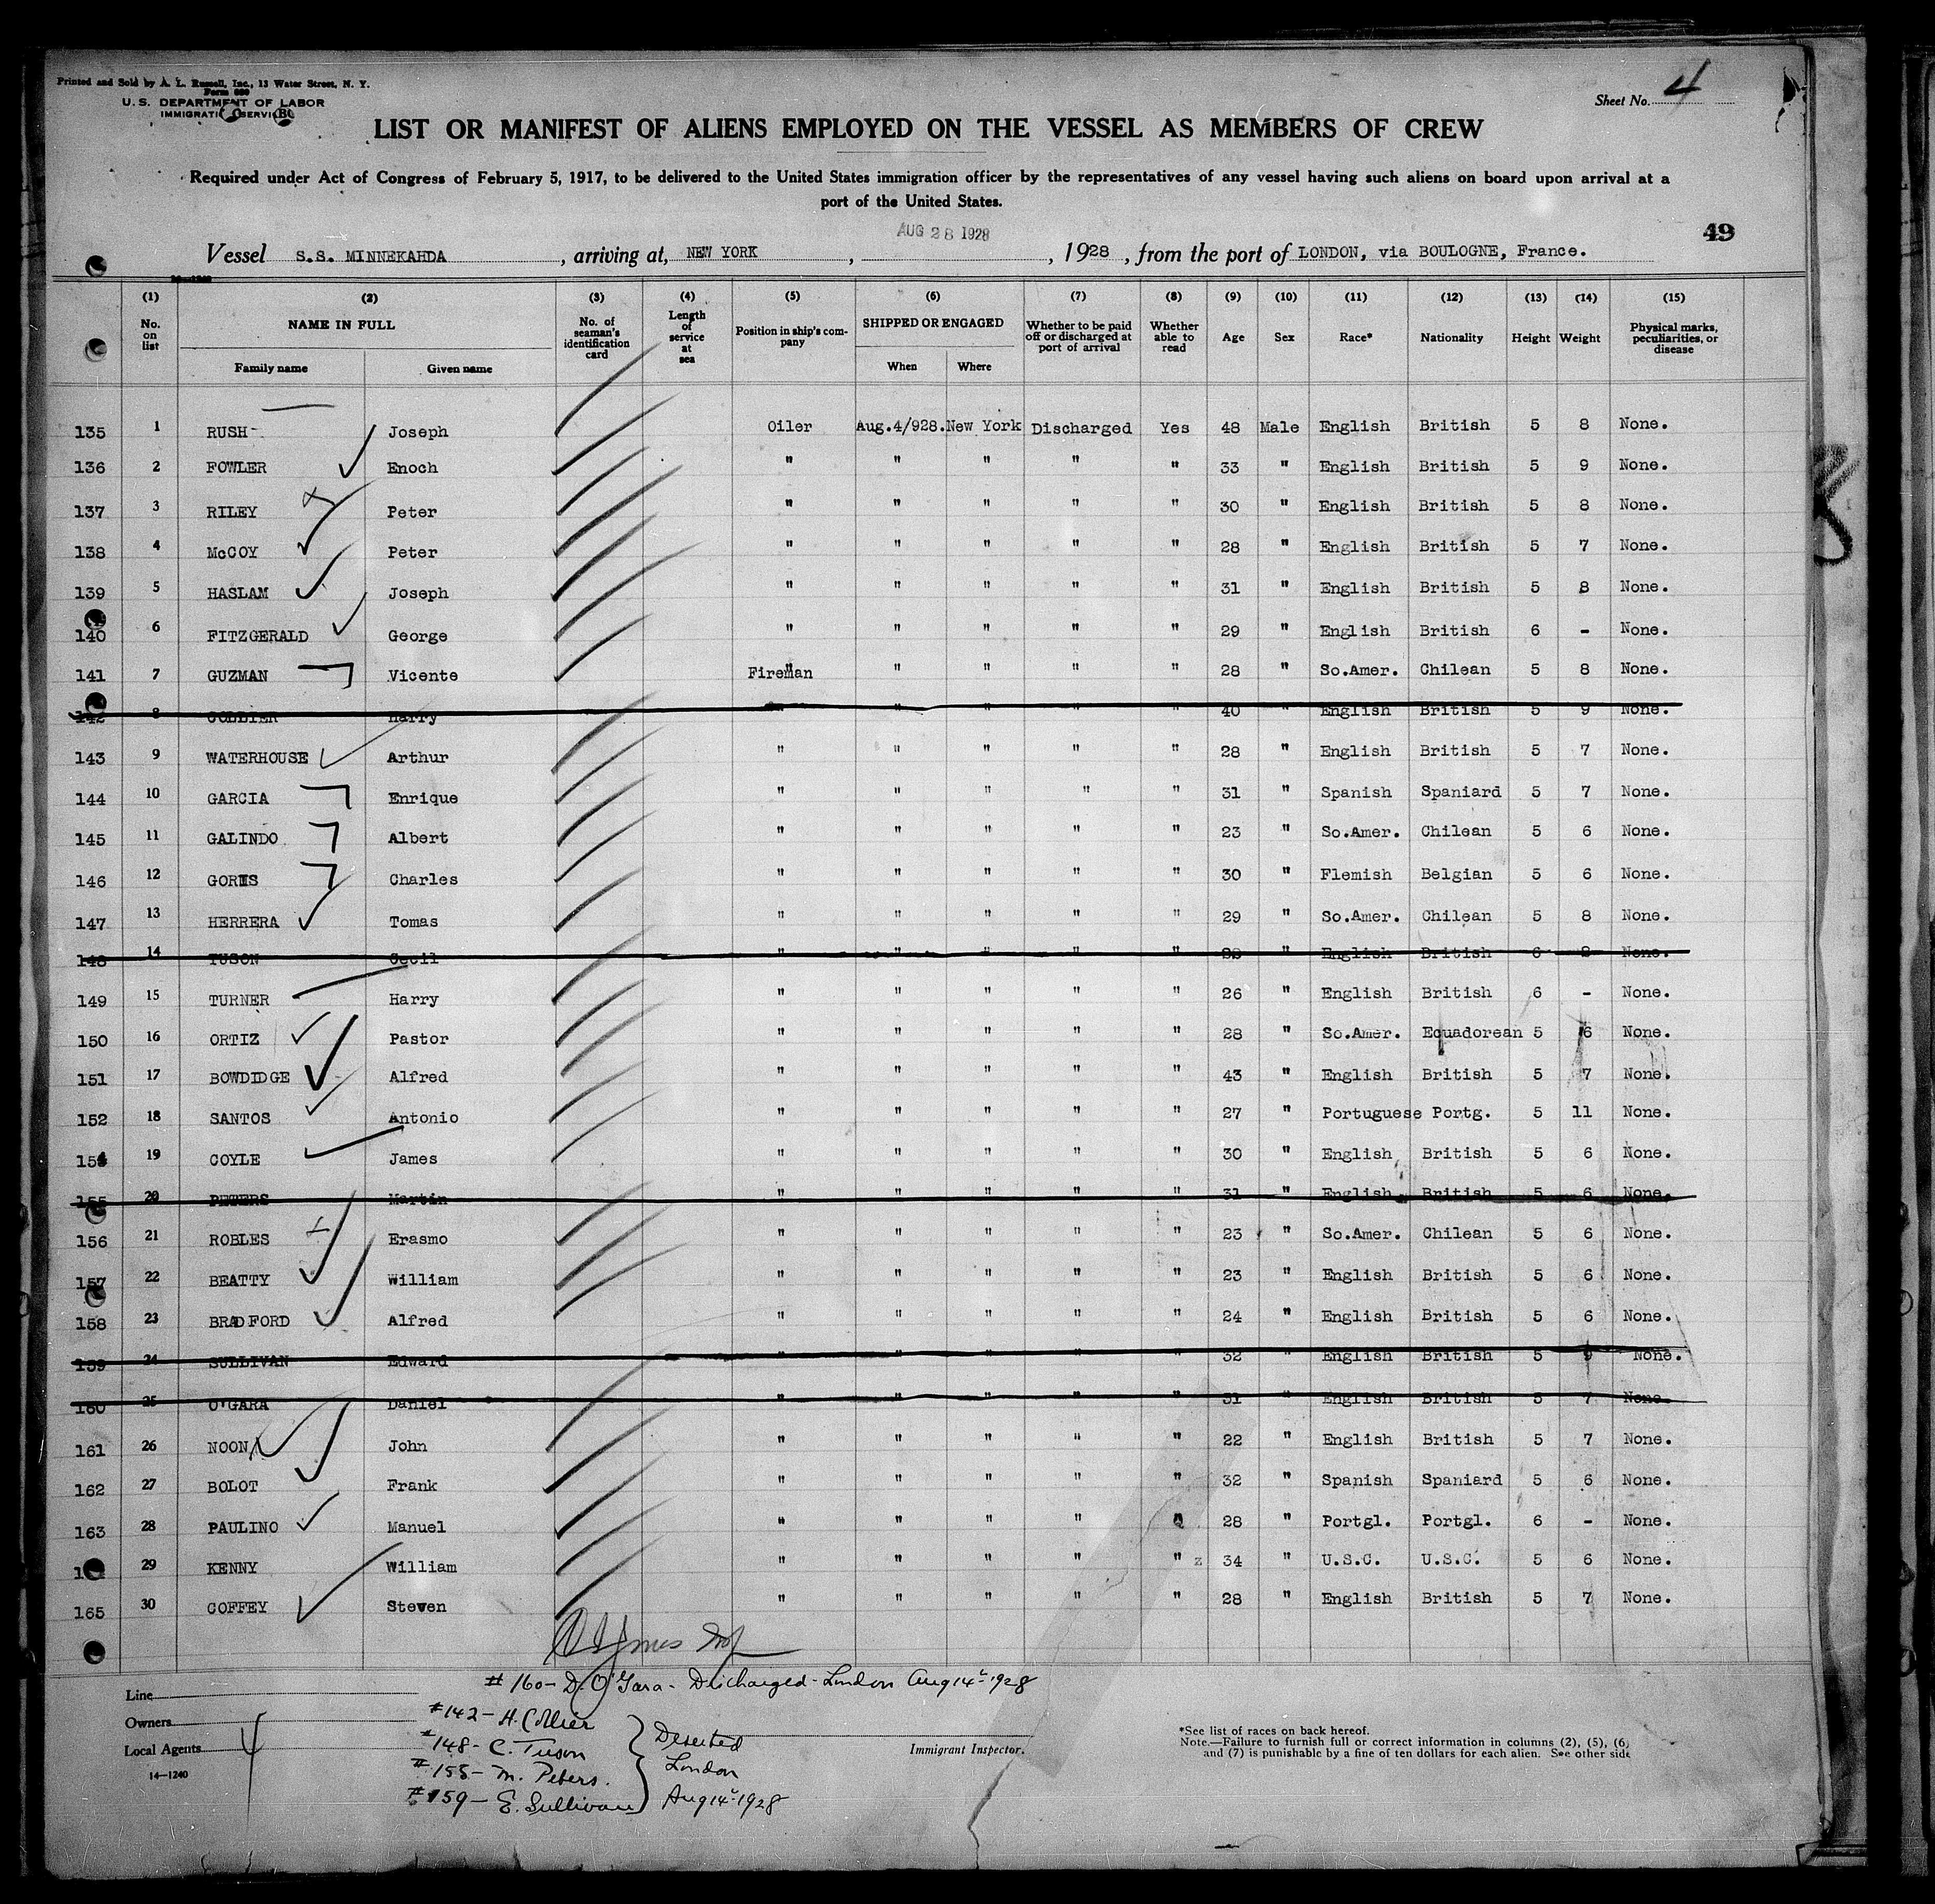 Printed and Sold by A. L. Russell, Inc., 13 Water Street, N. Y.
Form 680
U. S. DEPARTMENT OF LABOR
IMMIGRATION SERVICE
Sheet No. 4
LIST OR MANIFEST OF ALIENS EMPLOYED ON THE VESSEL AS MEMBERS OF CREW
Required under Act of Congress of February 5, 1917, to be delivered to the United States immigration officer by the representatives of any vessel having such aliens on board upon arrival at a
port of the United States.
AUG 28 1928
49
Vessel S.S. MINNEKAHDA, arriving at, NEW YORK, , 1928, from the port of LONDON, via BOULOGNE, France.
(1) (2) (3) (4) (5) (6) (7) (8) (9) (10) (11) (12) (13) (14) (15)
No. on list NAME IN FULL No. of seaman's identification card Length of service at sea Position in ship's company SHIPPED OR ENGAGED Whether to be paid off or discharged at port of arrival Whether able to read Age Sex Race* Nationality Height Weight Physical marks, peculiarities, or disease
Family name Given name When Where
135 1 RUSH Joseph Oiler Aug.4/928. New York Discharged Yes 48 Male English British 5 8 None.
136 2 FOWLER Enoch " " " " " 33 " English British 5 9 None.
137 3 RILEY Peter " " " " " 30 " English British 5 8 None.
138 4 McCOY Peter " " " " " 28 " English British 5 7 None.
139 5 HASLAM Joseph " " " " " 31 " English British 5 8 None.
140 6 FITZGERALD George " " " " " 29 " English British 6 - None.
141 7 GUZMAN Vicente Fireman " " " " 28 " So.Amer. Chilean 5 8 None.
142 8 COLLIER Harry " " " " " 40 " English British 5 9 None.
143 9 WATERHOUSE Arthur " " " " " 28 " English British 5 7 None.
144 10 GARCIA Enrique " " " " " 31 " Spanish Spaniard 5 7 None.
145 11 GALINDO Albert " " " " " 23 " So.Amer. Chilean 5 6 None.
146 12 GORIS Charles " " " " " 30 " Flemish Belgian 5 6 None.
147 13 HERRERA Tomas " " " " " 29 " So.Amer. Chilean 5 8 None.
148 14 TUSON Cecil " " " " " " English British None.
149 15 TURNER Harry " " " " " 26 " English British 6 - None.
150 16 ORTIZ Pastor " " " " " 28 " So.Amer. Ecuadorean 5 6 None.
151 17 BOWDIDGE Alfred " " " " " 43 " English British 5 7 None.
152 18 SANTOS Antonio " " " " " 27 " Portuguese Portg. 5 11 None.
154 19 COYLE James " " " " " 30 " English British 5 6 None.
155 20 PETERS Martin " " " " " 31 " English British 5 6 None.
156 21 ROBLES Erasmo " " " " " 23 " So.Amer. Chilean 5 6 None.
157 22 BEATTY William " " " " " 23 " English British 5 6 None.
158 23 BRADFORD Alfred " " " " " 24 " English British 5 6 None.
159 24 SULLIVAN Edward " " " " " 32 " English British 5 9 None.
160 25 O'GARA Daniel " " " " " 31 " English British 5 7 None.
161 26 NOON John " " " " " 22 " English British 5 7 None.
162 27 BOLOT Frank " " " " " 32 " Spanish Spaniard 5 6 None.
163 28 PAULINO Manuel " " " " " 28 " Portgl. Portgl. 6 - None.
29 KENNY William " " " " " z 34 " U.S.C. U.S.C. 5 6 None.
165 30 COFFEY Steven " " " " " 28 " English British 5 7 None.
# 160 - D. O'Gara - Discharged - London Aug 14th 1928
Line
Owners
Local Agents
14—1240
#142 - H. Collier
#148 - C. Tuson
#155 - M. Peters.
#159 - E. Sullivan
Deserted
London
Aug 14th 1928
Immigrant Inspector.
*See list of races on back hereof.
Note.—Failure to furnish full or correct information in columns (2), (5), (6)
and (7) is punishable by a fine of ten dollars for each alien. See other side